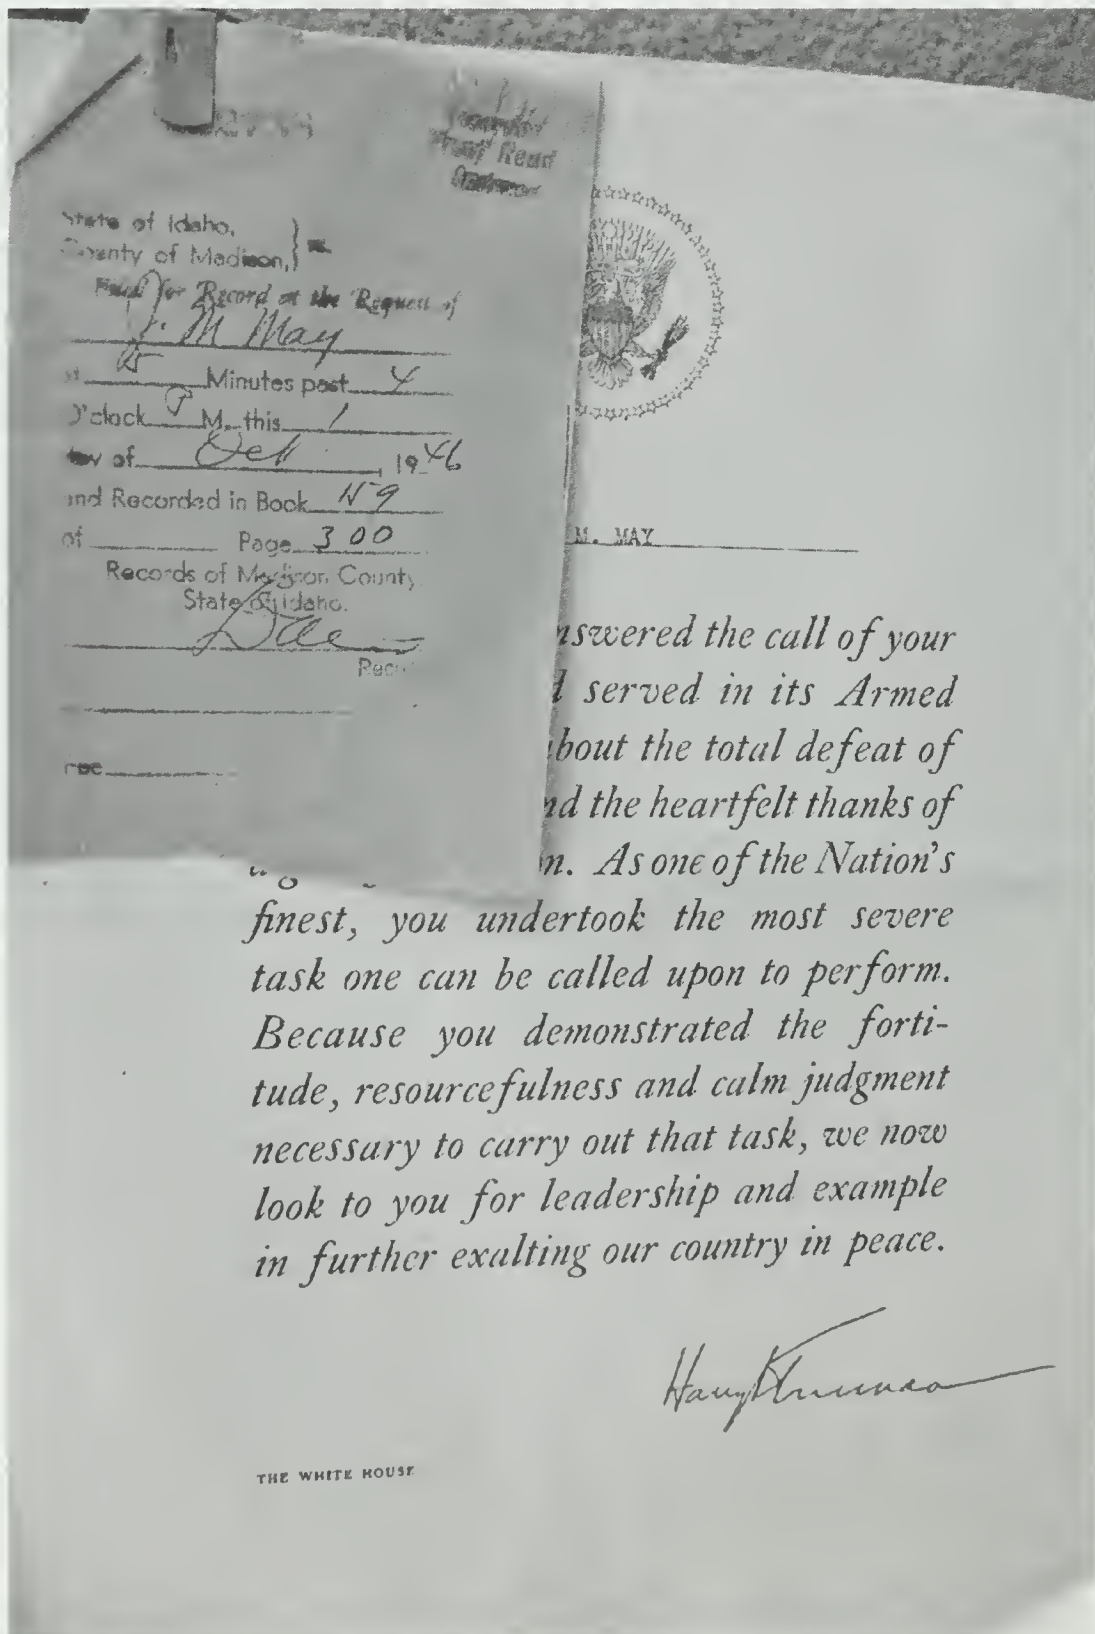 State of Idaho,
County of Madison, } ss.
Filed for Record at the Request of
J. M May
at 5 Minutes past 4
O'clock P M. this 1
day of Oct 1946
and Recorded in Book
of Page 300
Records of Madison County
State of Idaho.
M. MAY
nswered the call of your
d served in its Armed
bout the total defeat of
nd the heartfelt thanks of
n. As one of the Nation's
finest, you undertook the most severe
task one can be called upon to perform.
Because you demonstrated the forti-
tude, resourcefulness and calm judgment
necessary to carry out that task, we now
look to you for leadership and example
in further exalting our country in peace.
Harry Truman
THE WHITE HOUSE